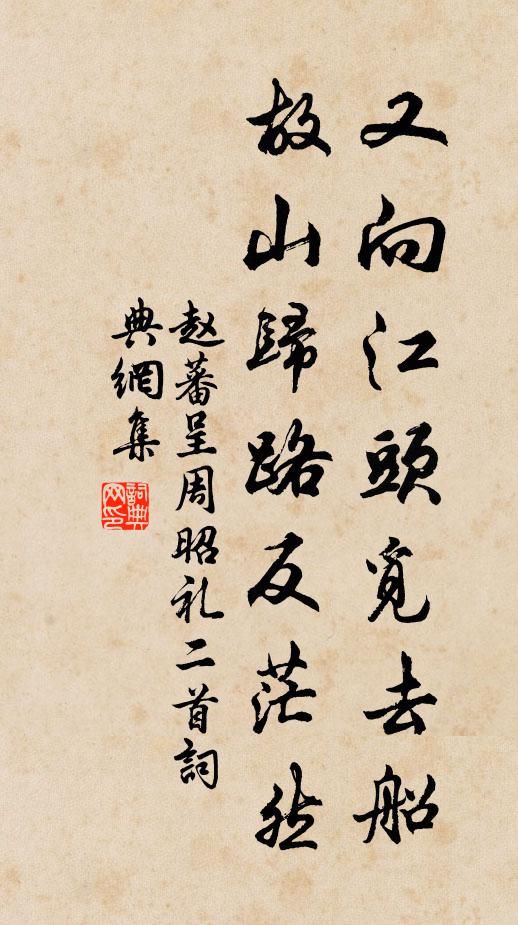 又向江頭覓去船
故山歸路反茫然
赵蕃呈周昭礼二首詞
典網集
詞典
网印